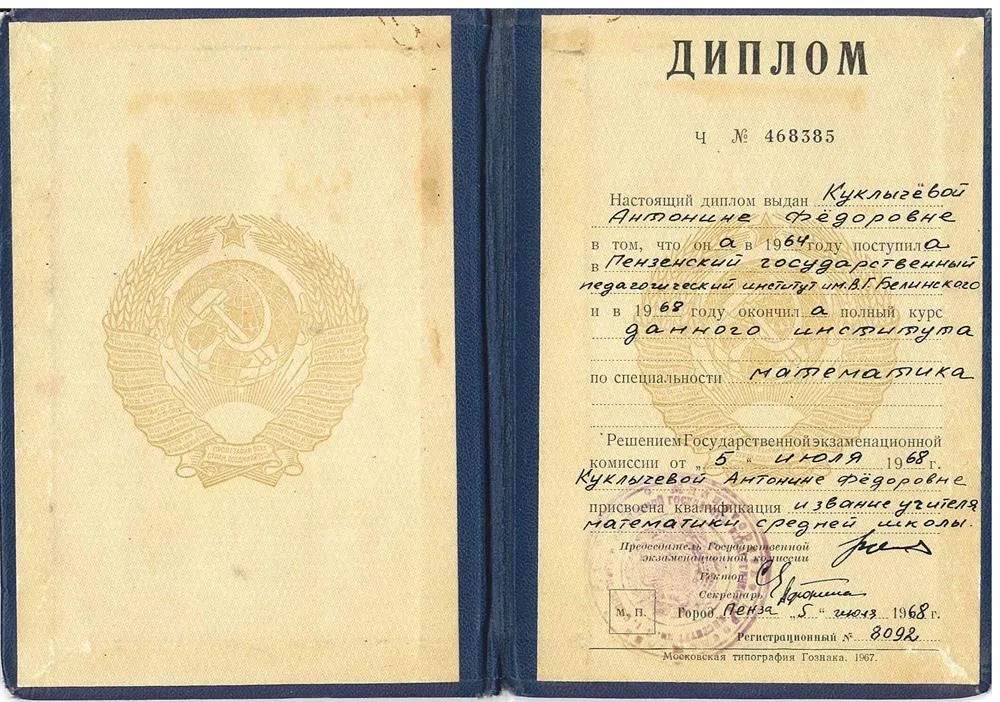 ДИПЛОМ
Ч № 468385
Настоящий диплом выдан Куклычёвой
Антонине Фёдоровне
в том, что он а в 1964 году поступил а
в Пензенский государственный
педагогический институт им. В.Г. Белинского
и в 1968 году окончил а полный курс
данного института
по специальности математика
Решением Государственной экзаменационной
комиссии от „ 5 “ июля 1968 г.
Куклычевой Антонине Фёдоровне
присвоена квалификация и звание учителя
математики средней школы.
Председатель Государственной
экзаменационной комиссии
Ректор
Секретарь
М. П.
Город Пенза „ 5 “ июля 1968 г.
Регистрационный № 8092
Московская типография Гознака. 1967.